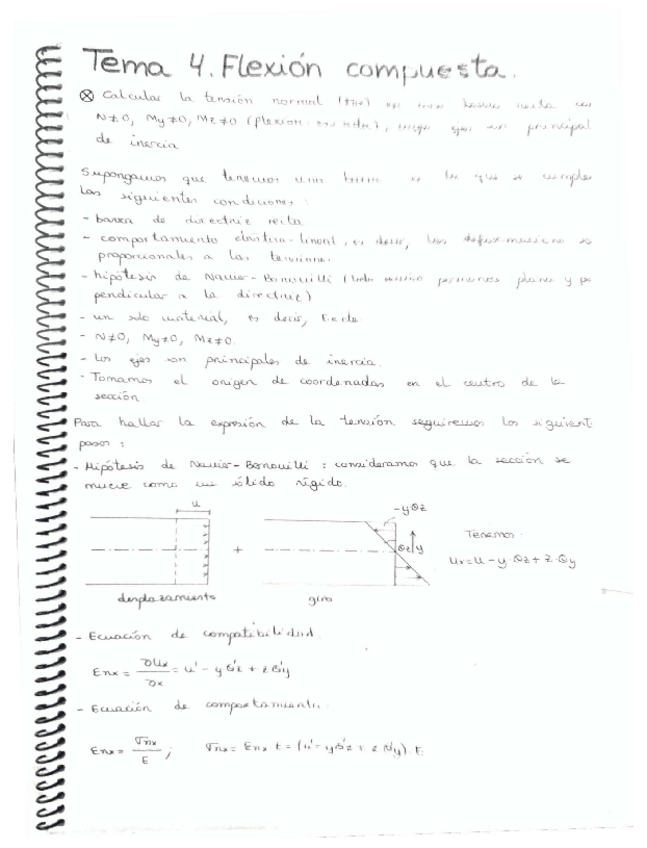 Tema 4. Flexión compuesta.
⊗ Calcular la tensión normal en una barra recta con
N≠0, My≠0, Mz≠0 (flexión ), ejes son principal
de inercia
Supongamos que tenemos una barra en la que se cumplen
las siguientes condiciones:
- barra de directriz recta
- comportamiento elástico-lineal, es decir, las deformaciones so
proporcionales a las tensiones.
- hipótesis de Navier-Bonouilli (toda sección permanece plana y pe
pendicular a la directriz)
- un solo material, es decir, E=cte.
- N≠0, My≠0, Mz≠0.
- Los ejes son principales de inercia.
- Tomamos el origen de coordenadas en el centro de la
sección.
Para hallar la expresión de la tensión seguiremos los siguient
pasos:
- Hipótesis de Navier-Bonouilli: consideramos que la sección se
mueve como un sólido rígido.
u
-yθz
+
θz y
Tenemos:
Ux=u-y·θz+z·θy
desplazamiento
giro
- Ecuación de compatibilidad.
Enx = ∂Ux/∂x = u' - yθ'z + zθ'y
- Ecuación de comportamiento.
Enx = σnx/E ; σnx = Enx E = (u' - yθ'z + zθ'y)·E